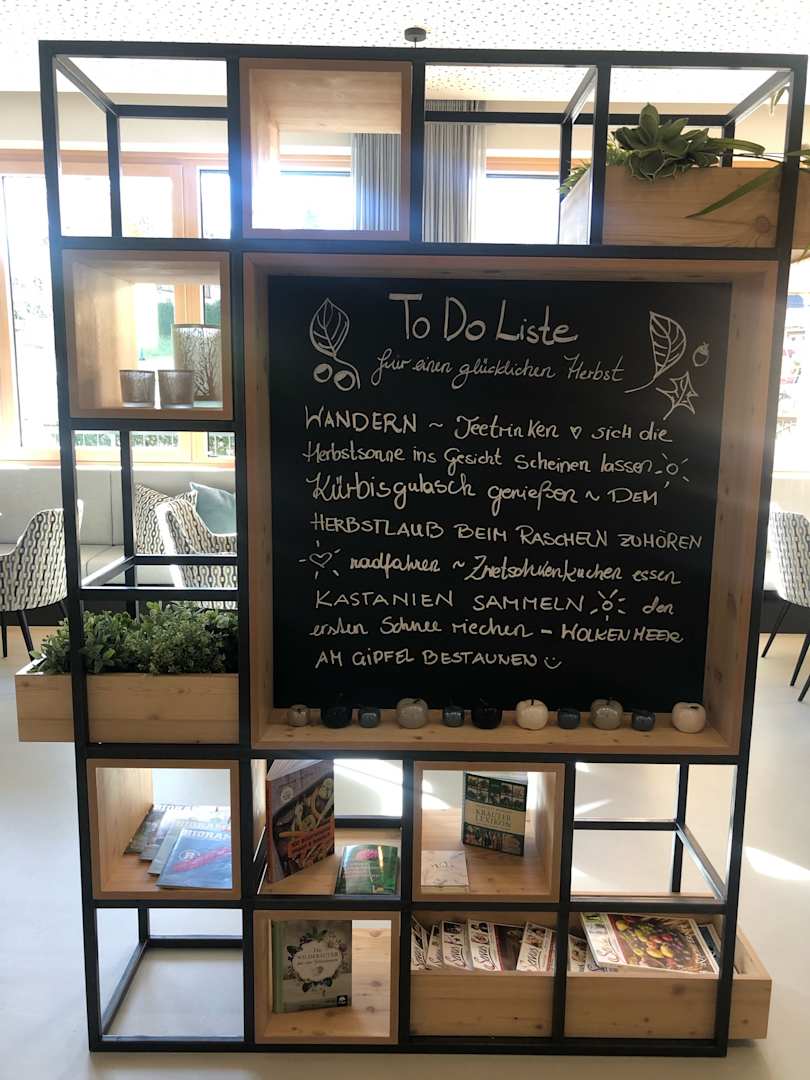 To Do Liste
für einen glücklichen Herbst
WANDERN ~ Teetrinken ♡ sich die
Herbstsonne ins Gesicht scheinen lassen
Kürbisgulasch genießen ~ DEM
HERBSTLAUB BEIM RASCHELN ZUHÖREN
radfahren ~ Zwetschkenkuchen essen
KASTANIEN SAMMELN den
ersten Schnee riechen – WOLKENMEER
AM GIPFEL BESTAUNEN
KRÄUTER
LEXIKON
WILDKRÄUTER